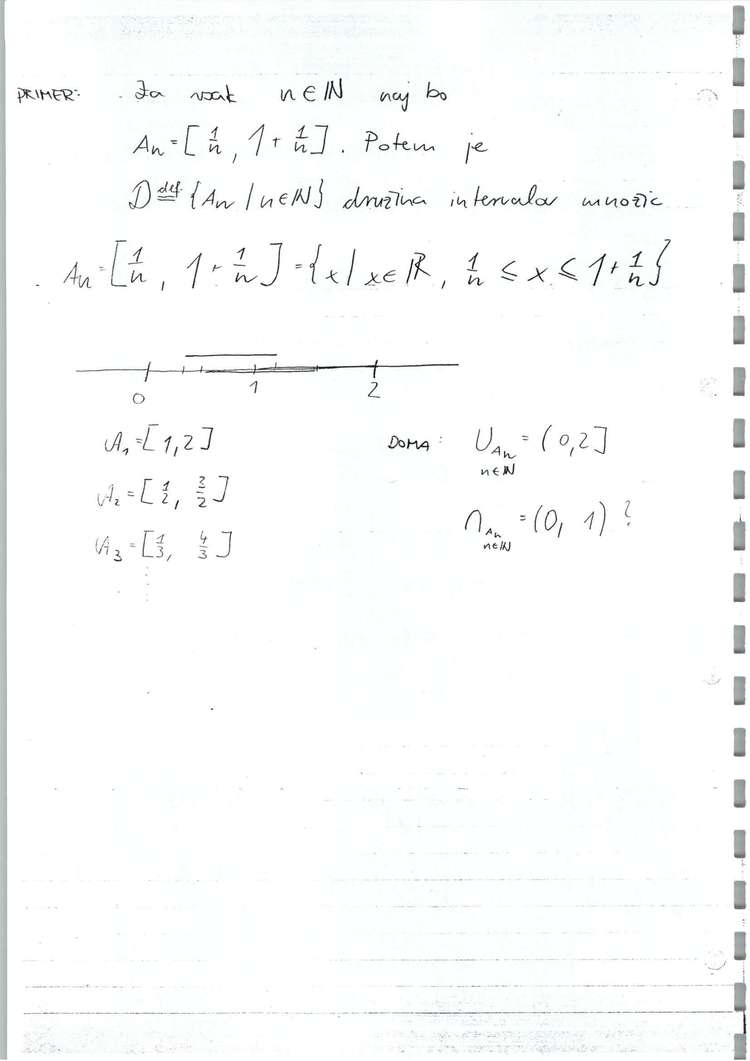 PRIMER: Za vsak n ∈ ℕ naj bo
An = [1/n, 1 + 1/n]. Potem je
D def= {An | n ∈ ℕ} družina intervalov množic
An = [1/n, 1 + 1/n] = {x | x ∈ ℝ, 1/n ≤ x ≤ 1 + 1/n}
0 1 2
A₁ = [1, 2]
A₂ = [1/2, 3/2]
A₃ = [1/3, 4/3]
DOMA: ∪ An = (0, 2]
n ∈ ℕ
∩ An = (0, 1) ?
n ∈ ℕ